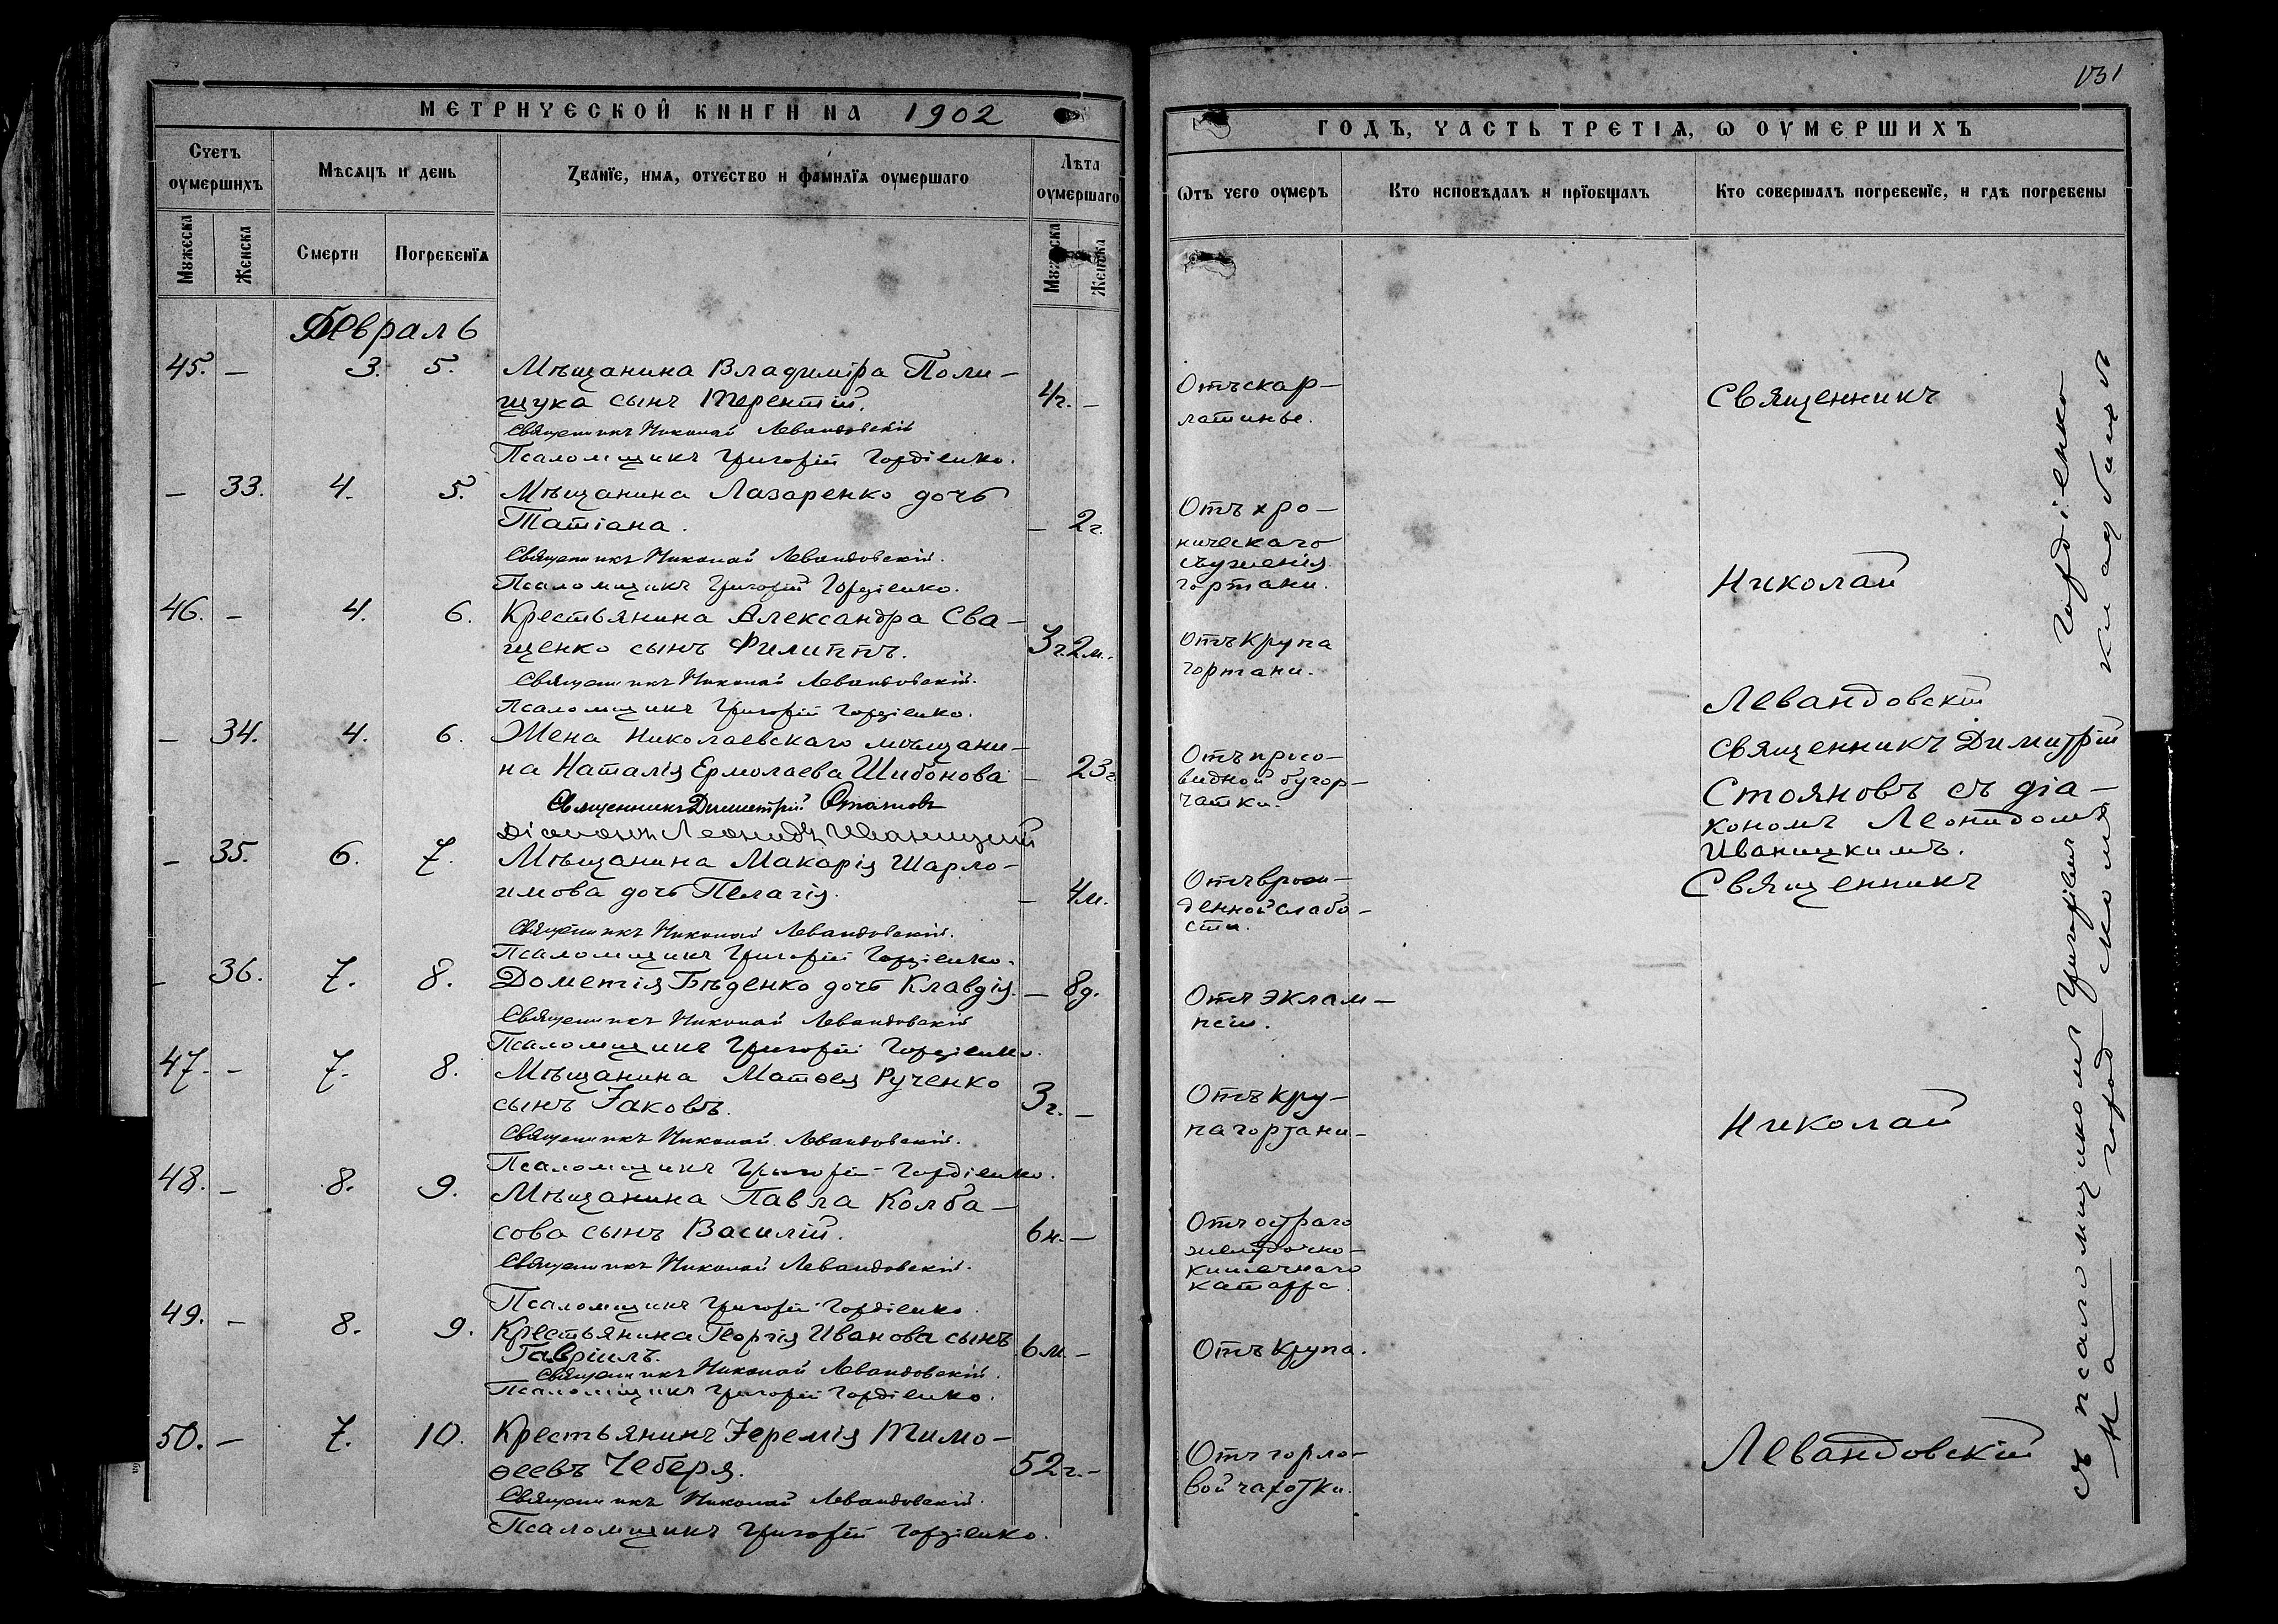 МЕТРИЧЕСКОЙ КНИГИ НА 1902
Счетъ оумершихъ
Мѣсяцъ и день
Званїе, имя, отчество и фамилїя оумершаго
Лѣта оумершаго
Мужеска
Женска
Смерти
Погребенїя
Мужеска
Женска
Февраль
45. — 3. 5. Мѣщанина Владиміра Поли-
щука сынъ Терентій. 4г. —
Священникъ Николай Левандовскій
Псаломщикъ Григорій Гордіенко.
— 33. 4. 5. Мѣщанина Лазаренко дочь
Татіана. — 2г.
Священникъ Николай Левандовскій.
Псаломщикъ Григорій Гордіенко.
46. — 4. 6. Крестьянина Александра Сва-
щенко сынъ Филиппъ. 3г. 2м.
Священникъ Николай Левандовскій.
Псаломщикъ Григорій Гордіенко.
— 34. 4. 6. Жена Николаевскаго мѣщани-
на Наталія Ермолаева Шибонова — 23г
Священникъ Димитрій Стояновъ
Діаконъ Леонидъ Иваницкій
— 35. 6. 7. Мѣщанина Макарія Шарло-
имова дочь Пелагія. — 4м.
Священникъ Николай Левандовскій.
Псаломщикъ Григорій Гордіенко.
— 36. 7. 8. Дометія Бѣденко дочь Клавдія. — 8д.
Священникъ Николай Левандовскій
Псаломщикъ Григорій Гордіенко.
47. — 7. 8. Мѣщанина Матѳея Рученко
сынъ Іаковъ. 3г. —
Священникъ Николай Левандовскій.
Псаломщикъ Григорій Гордіенко.
48. — 8. 9. Мѣщанина Павла Колба-
сова сынъ Василій. 6н. —
Священникъ Николай Левандовскій.
Псаломщикъ Григорій Гордіенко.
49. — 8. 9. Крестьянина Георгія Иванова сынъ
Гавріилъ. 6м —
Священникъ Николай Левандовскій.
Псаломщикъ Григорій Гордіенко.
50. — 7. 10. Крестьянинъ Іеремія Тимо-
ѳеевъ Чеберя. 52г. —
Священникъ Николай Левандовскій.
Псаломщикъ Григорій Гордіенко.
131
ГОДЪ, ЧАСТЬ ТРЕТІЯ, Ѡ ОУМЕРШИХЪ
Ѿтъ чего оумеръ
Кто исповѣдалъ и прїобщалъ
Кто совершалъ погребенїе, и гдѣ погребены
Отъ скар-
латины.
Отъ хро-
ническаго
съуженія
гортани.
Отъ крупа
гортани.
Отъ просо-
видной бугор-
чатки.
Отъ врож-
денной слабо-
сти.
Отъ эклам-
псіи.
Отъ кру-
па гортани-
Отъ остраго
желудочно-
кишечнаго
катарра.
Отъ крупа.
Отъ горло-
вой чахотки.
Священникъ
Николай
Левандовскій
Священникъ Димитрій
Стояновъ съ діа-
кономъ Леонидомъ
Иваницкимъ.
Священникъ
Николай
Левандовскій
съ псаломщикомъ Григоріемъ Гордіенко
На городскомъ кладбищѣ